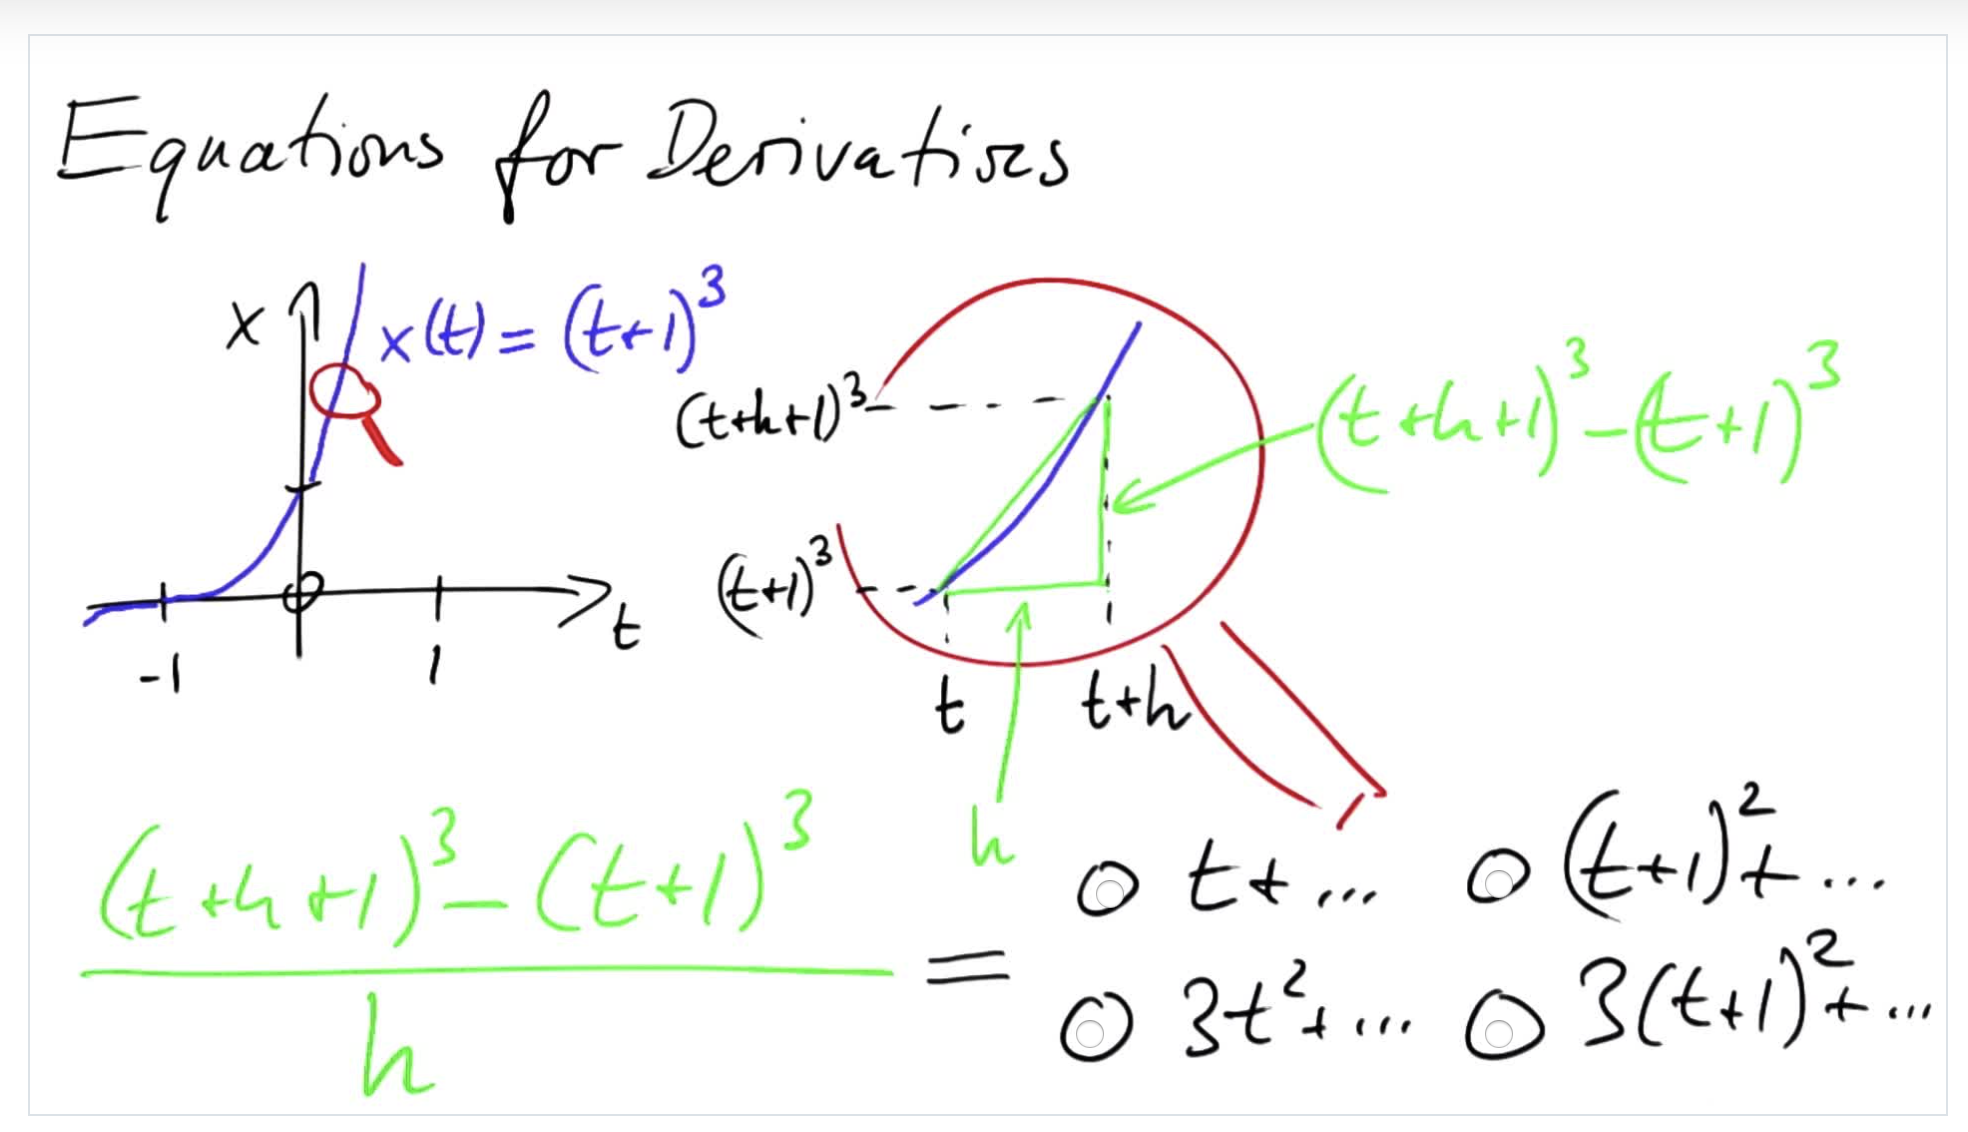 Equations for Derivatives
x
x(t) = (t+1)³
(t+h+1)³
(t+h+1)³ - (t+1)³
(t+1)³
0
t
-1
1
t
t+h
h
(t+h+1)³ - (t+1)³
h
=
t + ...
(t+1)² + ...
3t² + ...
3(t+1)² + ...